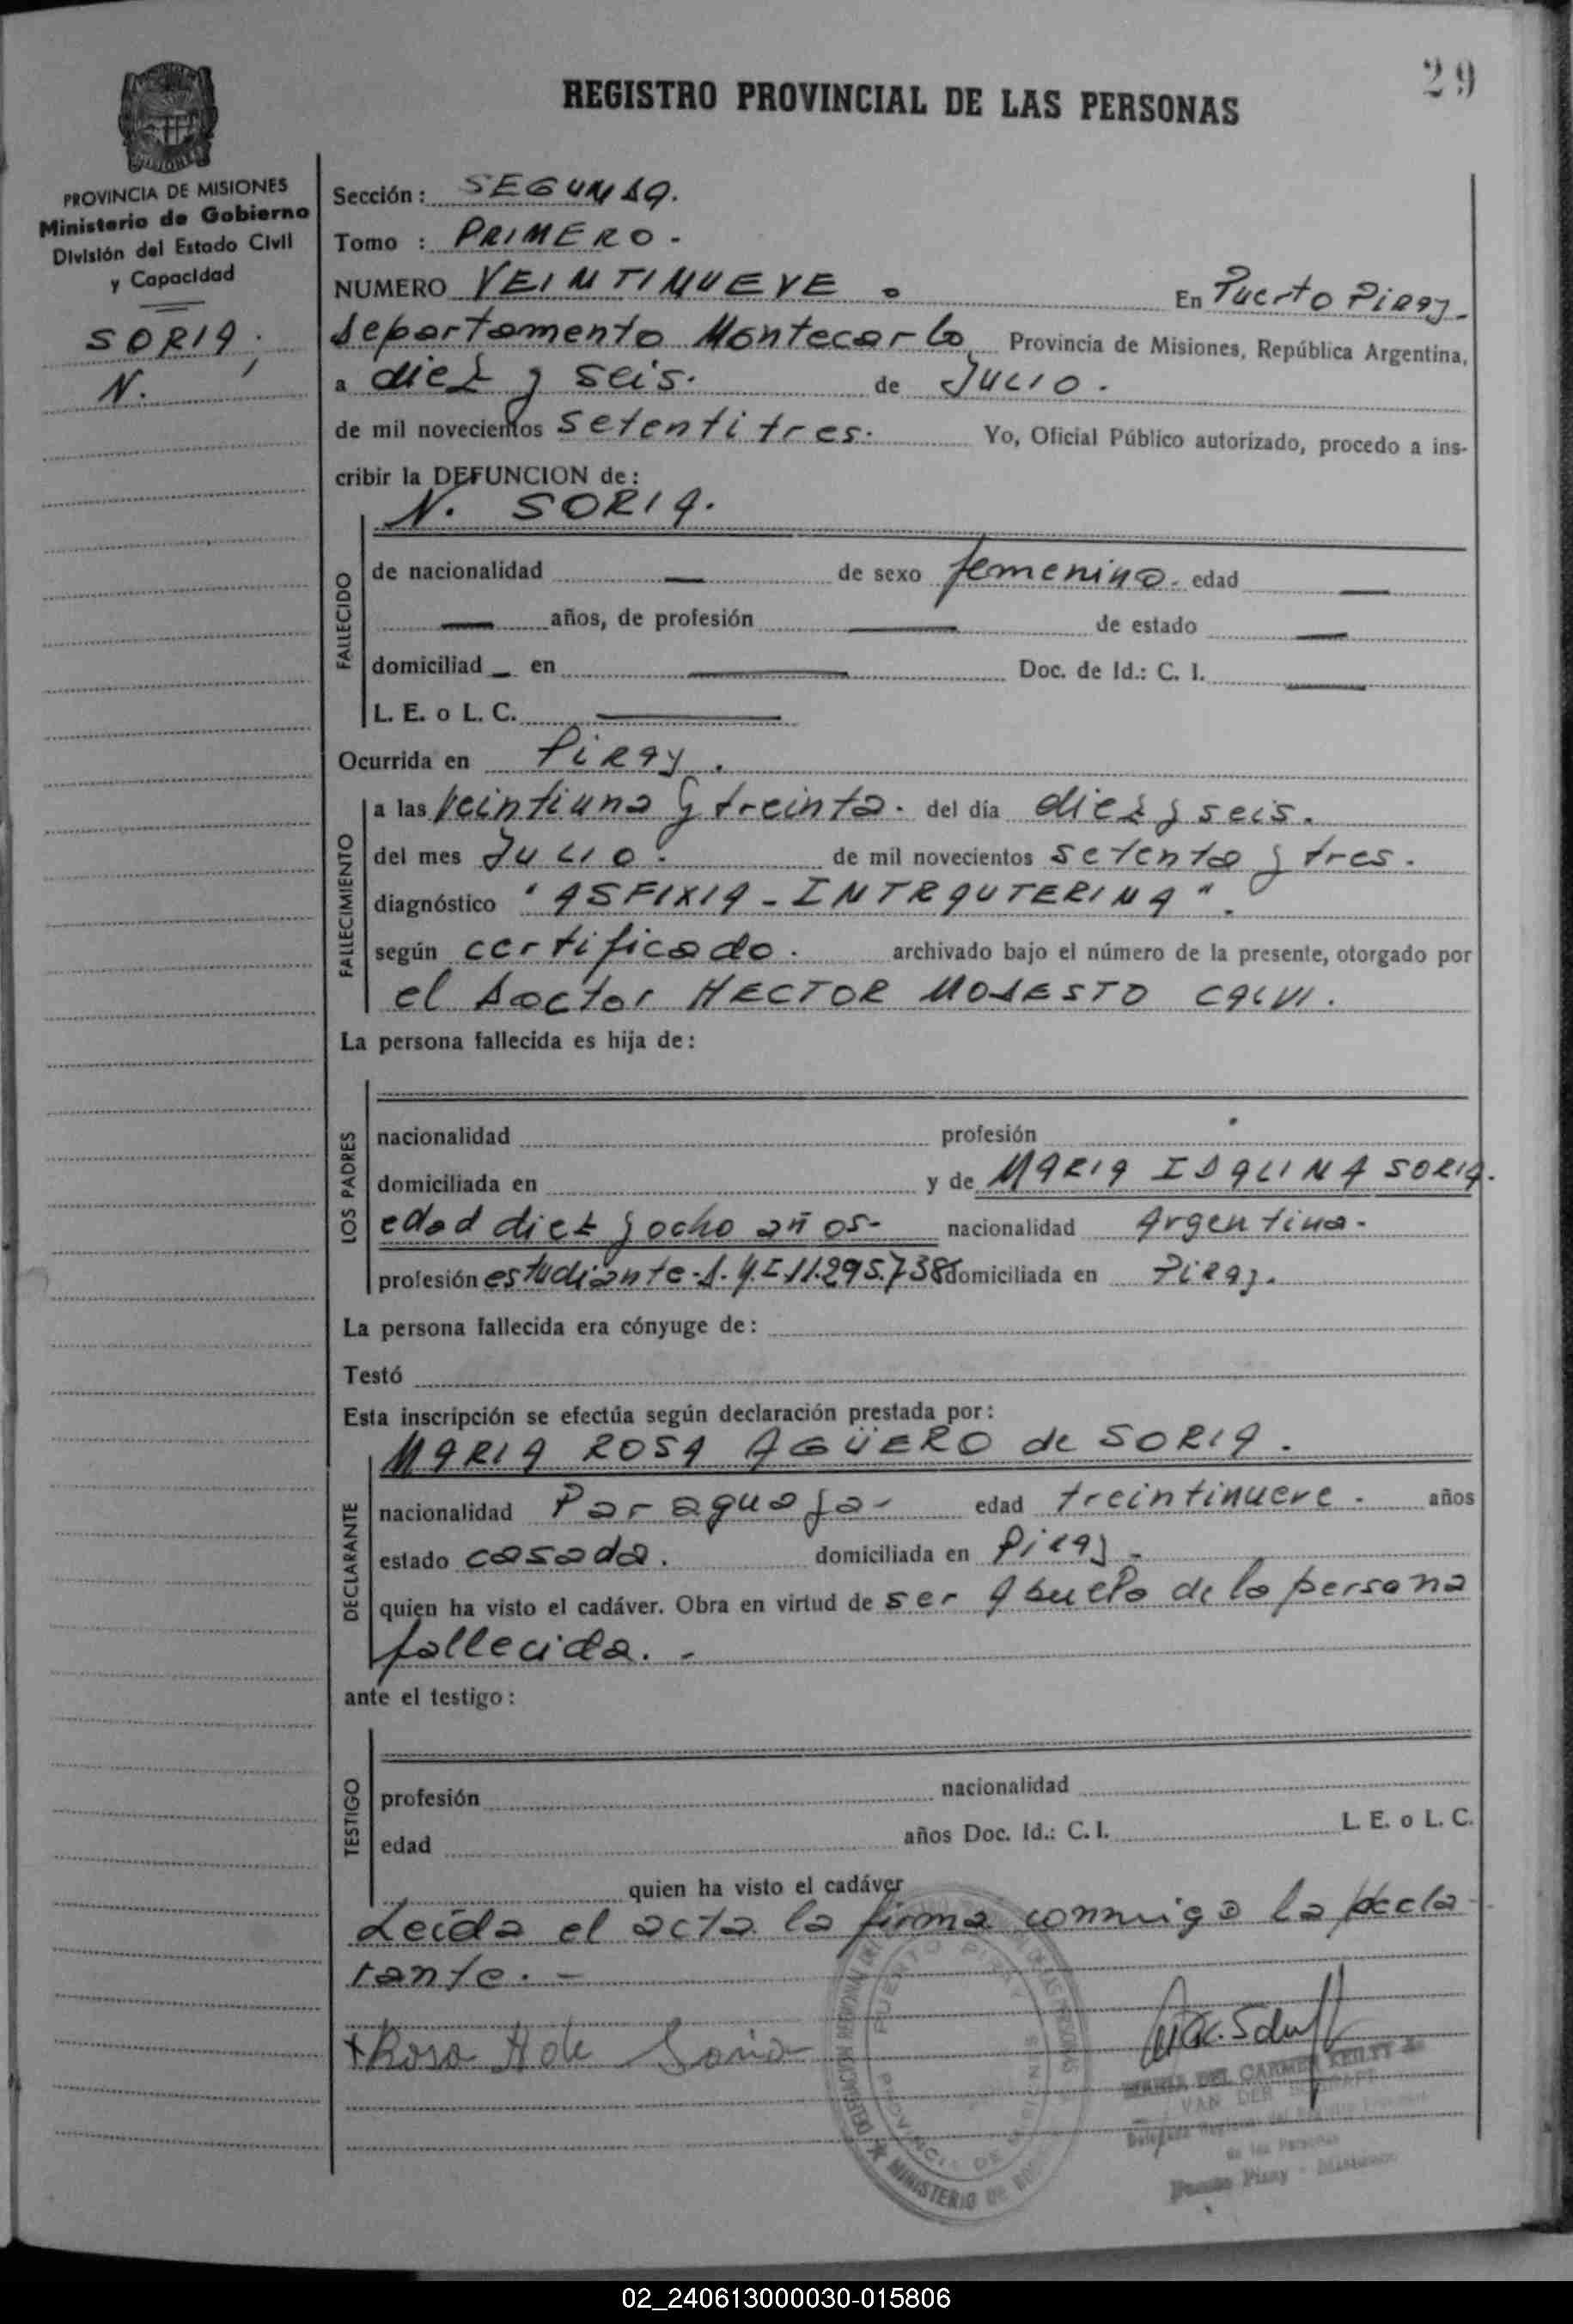 29
REGISTRO PROVINCIAL DE LAS PERSONAS
PROVINCIA DE MISIONES
Ministerio de Gobierno
División del Estado Civil
y Capacidad
SORIA,
N.
Sección: SEGUNDA.
Tomo : PRIMERO.
NUMERO VEINTINUEVE. En Puerto Piray.
departamento Montecarlo Provincia de Misiones, República Argentina,
a diez y seis. de Julio.
de mil novecientos setentitres. Yo, Oficial Público autorizado, procedo a ins-
cribir la DEFUNCION de:
N. SORIA.
FALLECIDO
de nacionalidad — de sexo femenino. edad —
— años, de profesión — de estado —
domiciliad — en — Doc. de Id.: C. I. —
L. E. o L. C. —
Ocurrida en Piray.
FALLECIMIENTO
a las veintiuna y treinta. del día diez y seis.
del mes Julio. de mil novecientos setenta y tres.
diagnóstico "ASFIXIA - INTRAUTERINA".
según certificado. archivado bajo el número de la presente, otorgado por
el doctor HECTOR MODESTO CALVI.
La persona fallecida es hija de:
LOS PADRES
nacionalidad profesión
domiciliada en y de MARIA IDALINA SORIA.
edad diez y ocho años- nacionalidad Argentina.
profesión estudiante-D.N.I 11.295.738 domiciliada en Piray.
La persona fallecida era cónyuge de:
Testó
Esta inscripción se efectúa según declaración prestada por:
MARIA ROSA AGÜERO de SORIA.
DECLARANTE
nacionalidad Paraguaya- edad treintinueve. años
estado casada. domiciliada en Piray-
quien ha visto el cadáver. Obra en virtud de ser Abuela de la persona
fallecida. -
ante el testigo:
TESTIGO
profesión nacionalidad
edad años Doc. Id.: C. I. L. E. o L. C.
quien ha visto el cadáver
Leída el acta la firma conmigo la decla-
rante. -
Rosa A de Soria
PUERTO PIRAY
PROVINCIA DE MISIONES
DELEGACION REGIONAL DE LAS PERSONAS
MINISTERIO DE
MARIA DEL CARMEN
VAN DER
de las Personas
Puerto Piray - Misiones
02_240613000030-015806